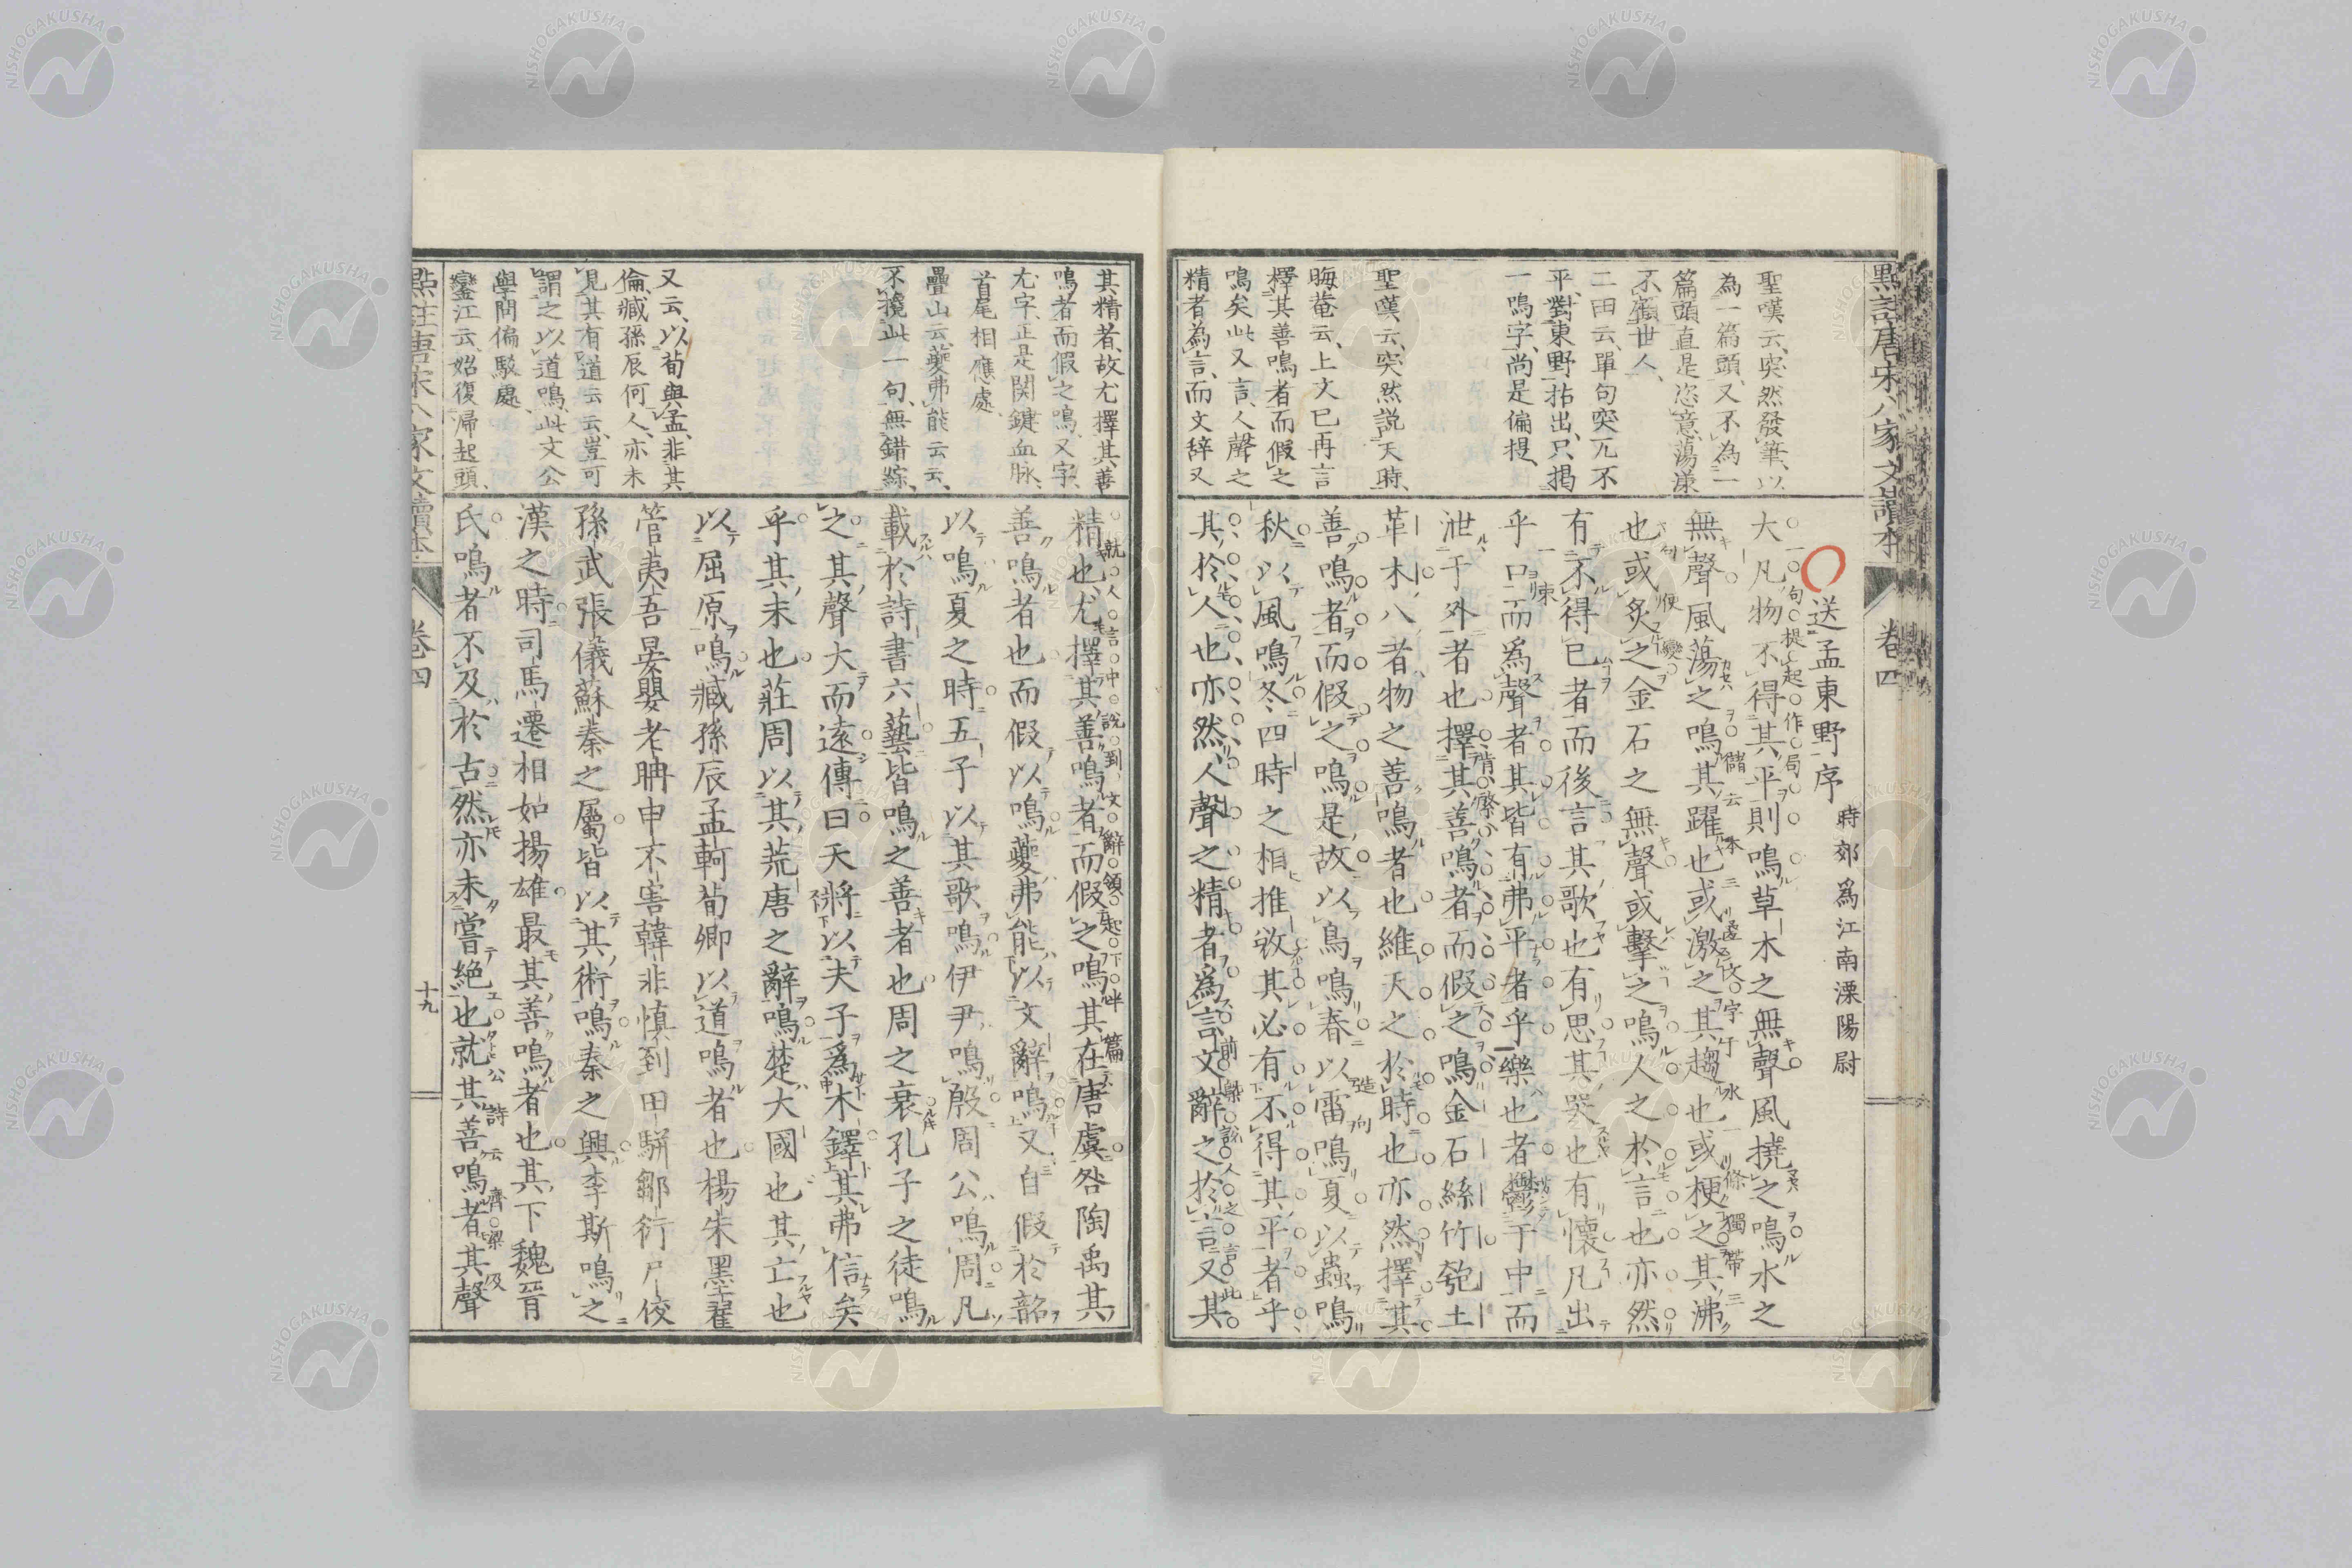 點註唐宋八家文讀本
卷四
聖嘆云、突然發筆、以
為一篇頭、又不為一
篇頭、直是恣意蕩漾
不顧世人、
二田云、單句突兀、不
平、對東野拈出、只揭
一鳴字、尚是偏提、
聖嘆云、突然說天時、
晦菴云、上文已再言
擇其善鳴者而假之
鳴矣、此又言、人聲之
精者為言、而文辞又
送孟東野序 時郊爲江南溧陽尉
大凡物不得其平則鳴草木之無聲風撓之鳴水之
無聲風蕩之鳴其躍也或激之其趨也或梗之其沸
也或炙之金石之無聲或擊之鳴人之於言也亦然
有不得已者而後言其歌也有思其哭也有懷凡出
乎口而爲聲者其皆有弗平者乎樂也者鬱于中而
泄于外者也擇其善鳴者而假之鳴金石絲竹匏土
革木八者物之善鳴者也維天之於時也亦然擇其
善鳴者而假之鳴是故以鳥鳴春以雷鳴夏以蟲鳴
秋以風鳴冬四時之相推敚其必有不得其平者乎
其於人也亦然人聲之精者爲言文辭之於言又其
其精者、故尤擇其善
鳴者而假之鳴、又字、
尤字、正是関鍵血脉、
首尾相應處、
疊山云、夔弗能云云、
不攙此一句、無錯綜、
又云、以荀與孟、非其
倫、臧孫辰何人、亦未
見其有道云云、豈可
謂之以道鳴、此文公
學問偏駁處、
鑾江云、始復㱕起頭、
精也尤擇其善鳴者而假之鳴其在唐虞咎陶禹其
善鳴者也而假以鳴夔弗能以文辭鳴又自假於韶
以鳴夏之時五子以其歌鳴伊尹鳴殷周公鳴周凡
載於詩書六藝皆鳴之善者也周之衰孔子之徒鳴
之其聲大而遠傳曰天將以夫子爲木鐸其弗信矣
乎其末也莊周以其荒唐之辭鳴楚大國也其亡也
以屈原鳴臧孫辰孟軻荀卿以道鳴者也楊朱墨翟
管夷吾晏嬰老聃申不害韓非愼到田駢鄒衍尸佼
孫武張儀蘇秦之屬皆以其術鳴秦之興李斯鳴之
漢之時司馬遷相如揚雄最其善鳴者也其下魏晉
氏鳴者不及於古然亦未嘗絕也就其善鳴者其聲
點註唐宋八家文讀本
卷四
十九